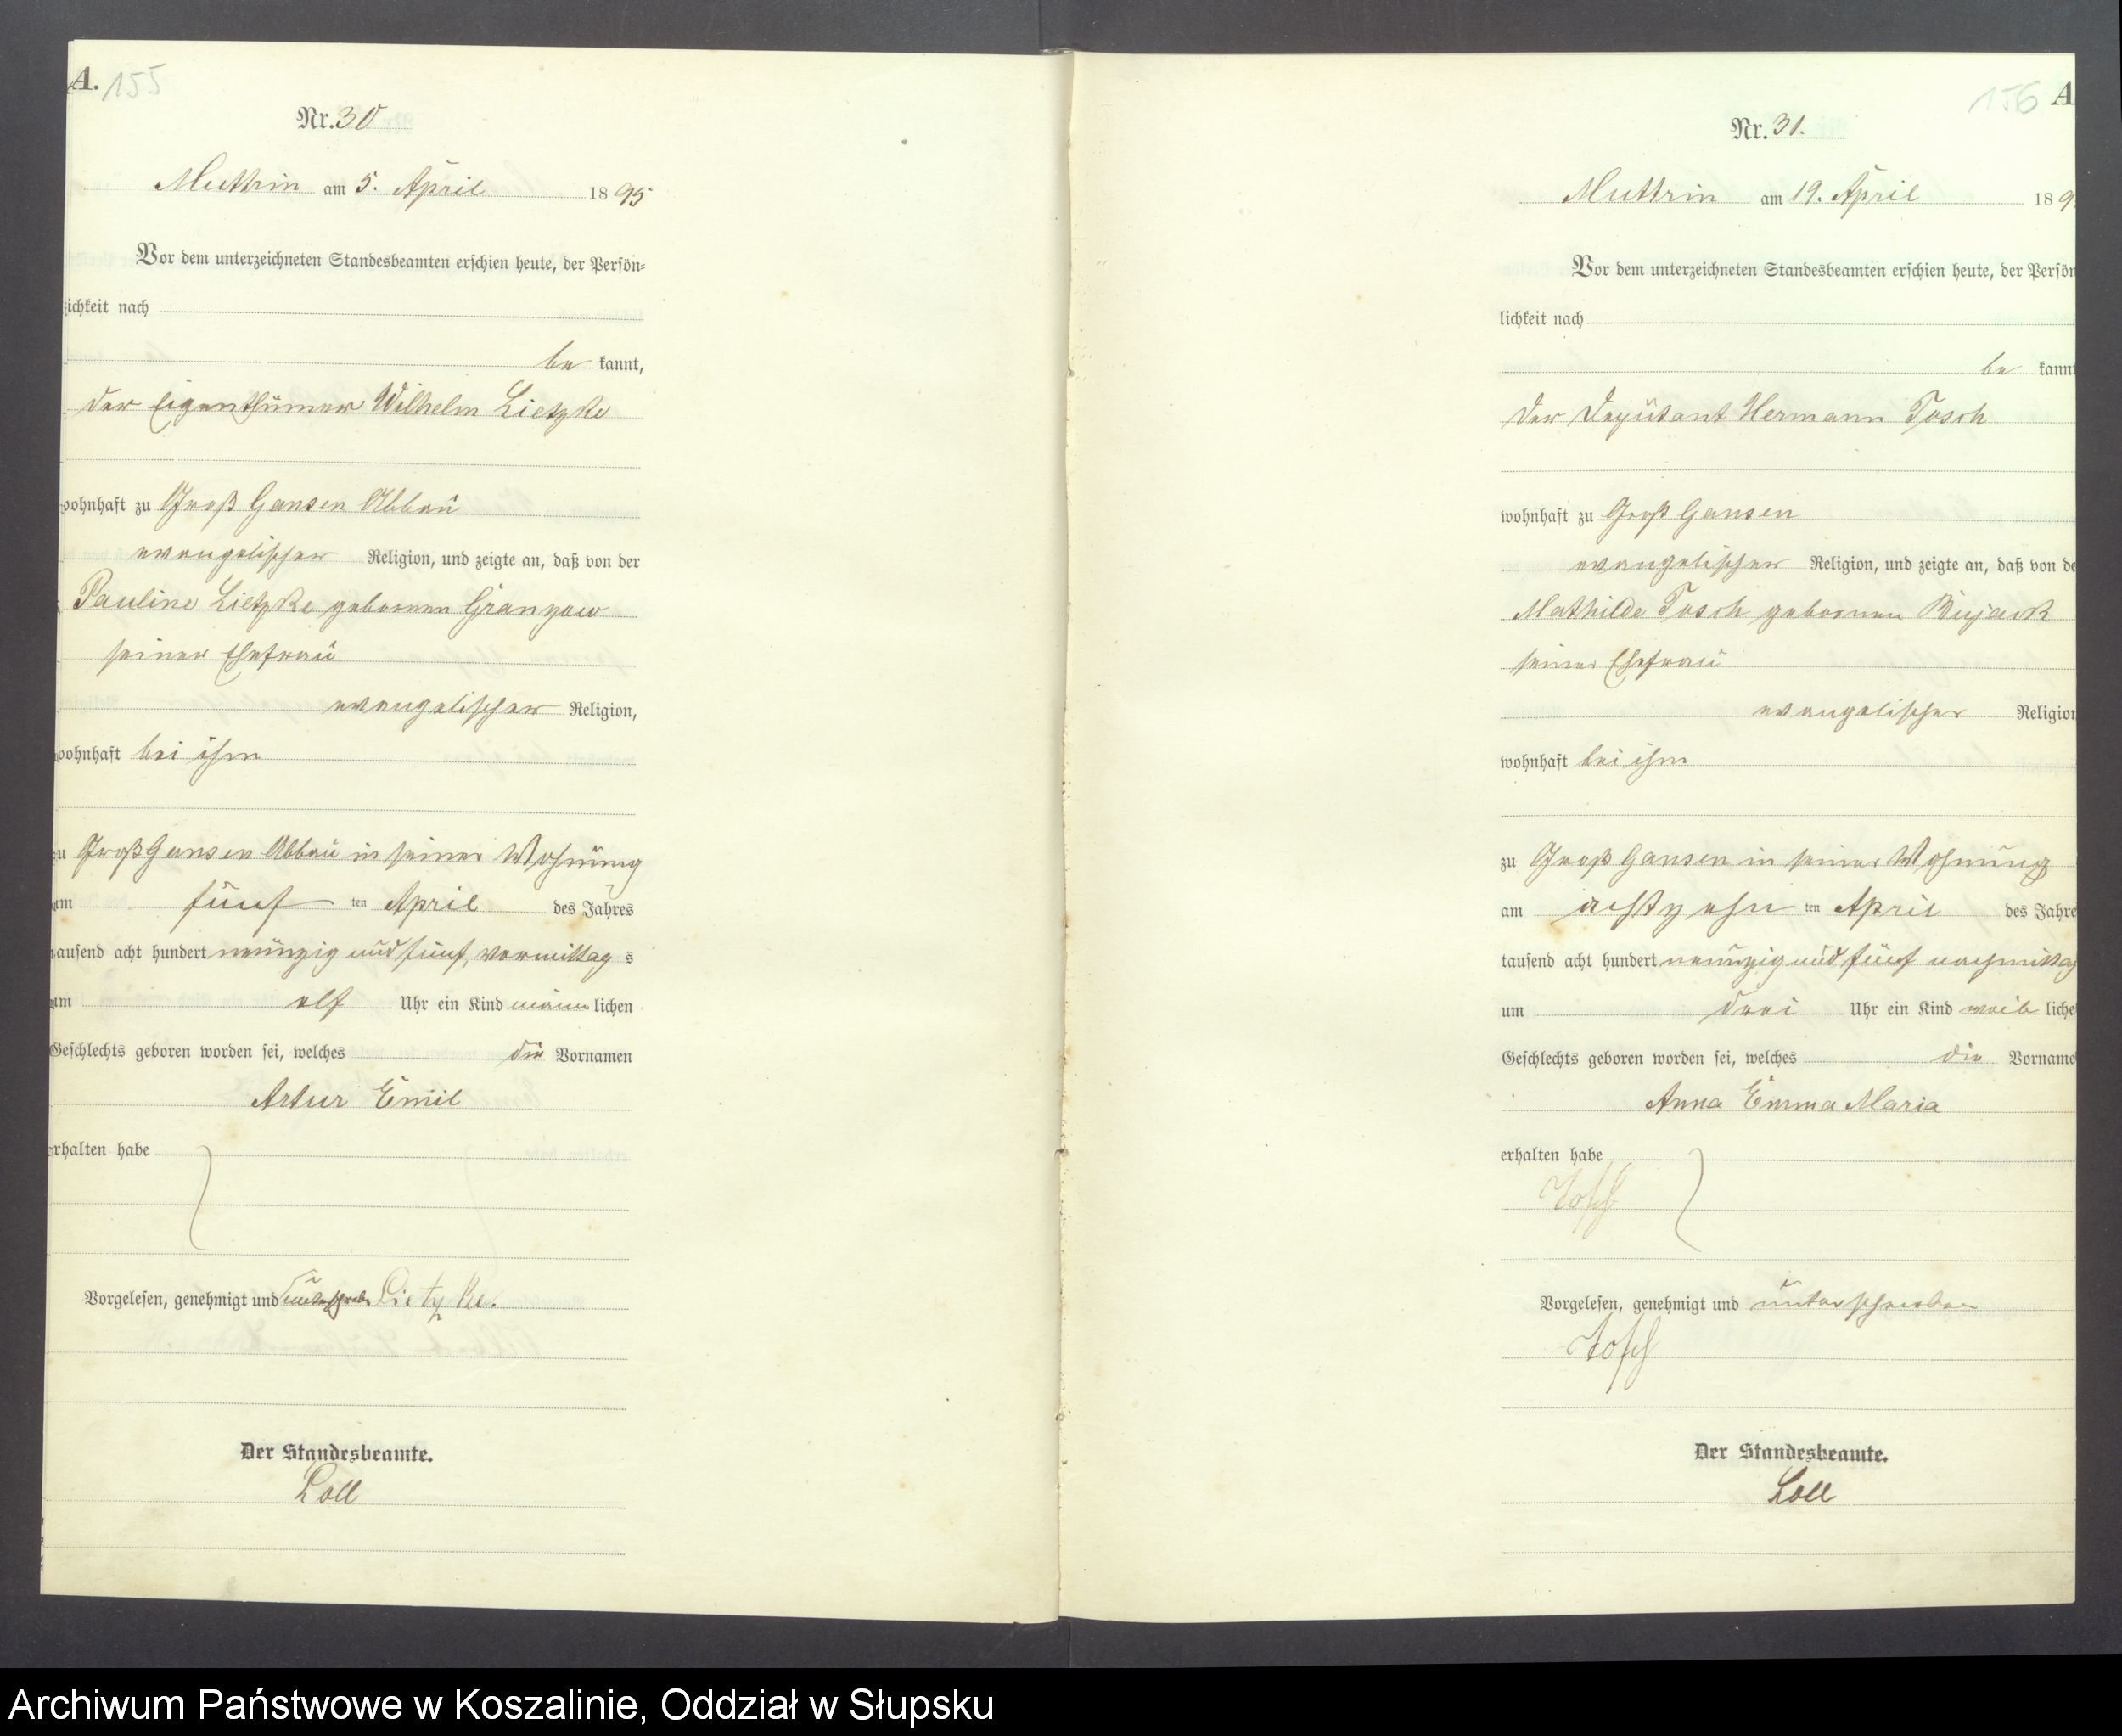 A. 155
Nr. 30
Muttrin am 5. April 1895
Vor dem unterzeichneten Standesbeamten erschien heute, der Persön-
lichkeit nach
be kannt,
der Eigenthümer Wilhelm Lietzke
wohnhaft zu Groß Gansen Abbau
evangelischer Religion, und zeigte an, daß von der
Pauline Lietzke gebornen Granzow
seiner Ehefrau
evangelischer Religion,
wohnhaft bei ihm
zu Groß Gansen Abbau in seiner Wohnung
am fünf ten April des Jahres
tausend acht hundert neunzig und fünf, vormittag s
um elf Uhr ein Kind männ lichen
Geschlechts geboren worden sei, welches die Vornamen
Artur Emil
erhalten habe
Vorgelesen, genehmigt und unterschrieben Lietzke.
Der Standesbeamte.
Loll
156 A
Nr. 31.
Muttrin am 19. April 189
Vor dem unterzeichneten Standesbeamten erschien heute, der Persön
lichkeit nach
be kannt
der Deputant Hermann Tosch
wohnhaft zu Groß Gansen
evangelischer Religion, und zeigte an, daß von de
Mathilde Tosch gebornen Bujack
seiner Ehefrau
evangelischer Religion
wohnhaft bei ihm
zu Groß Gansen in seiner Wohnung
am achtzehn ten April des Jahre
tausend acht hundert neunzig und fünf nachmittag
um drei Uhr ein Kind weib liche
Geschlechts geboren worden sei, welches die Vorname
Anna Emma Maria
erhalten habe
Tosch
Vorgelesen, genehmigt und unterschrieben
Tosch
Der Standesbeamte.
Loll
Archiwum Państwowe w Koszalinie, Oddział w Słupsku